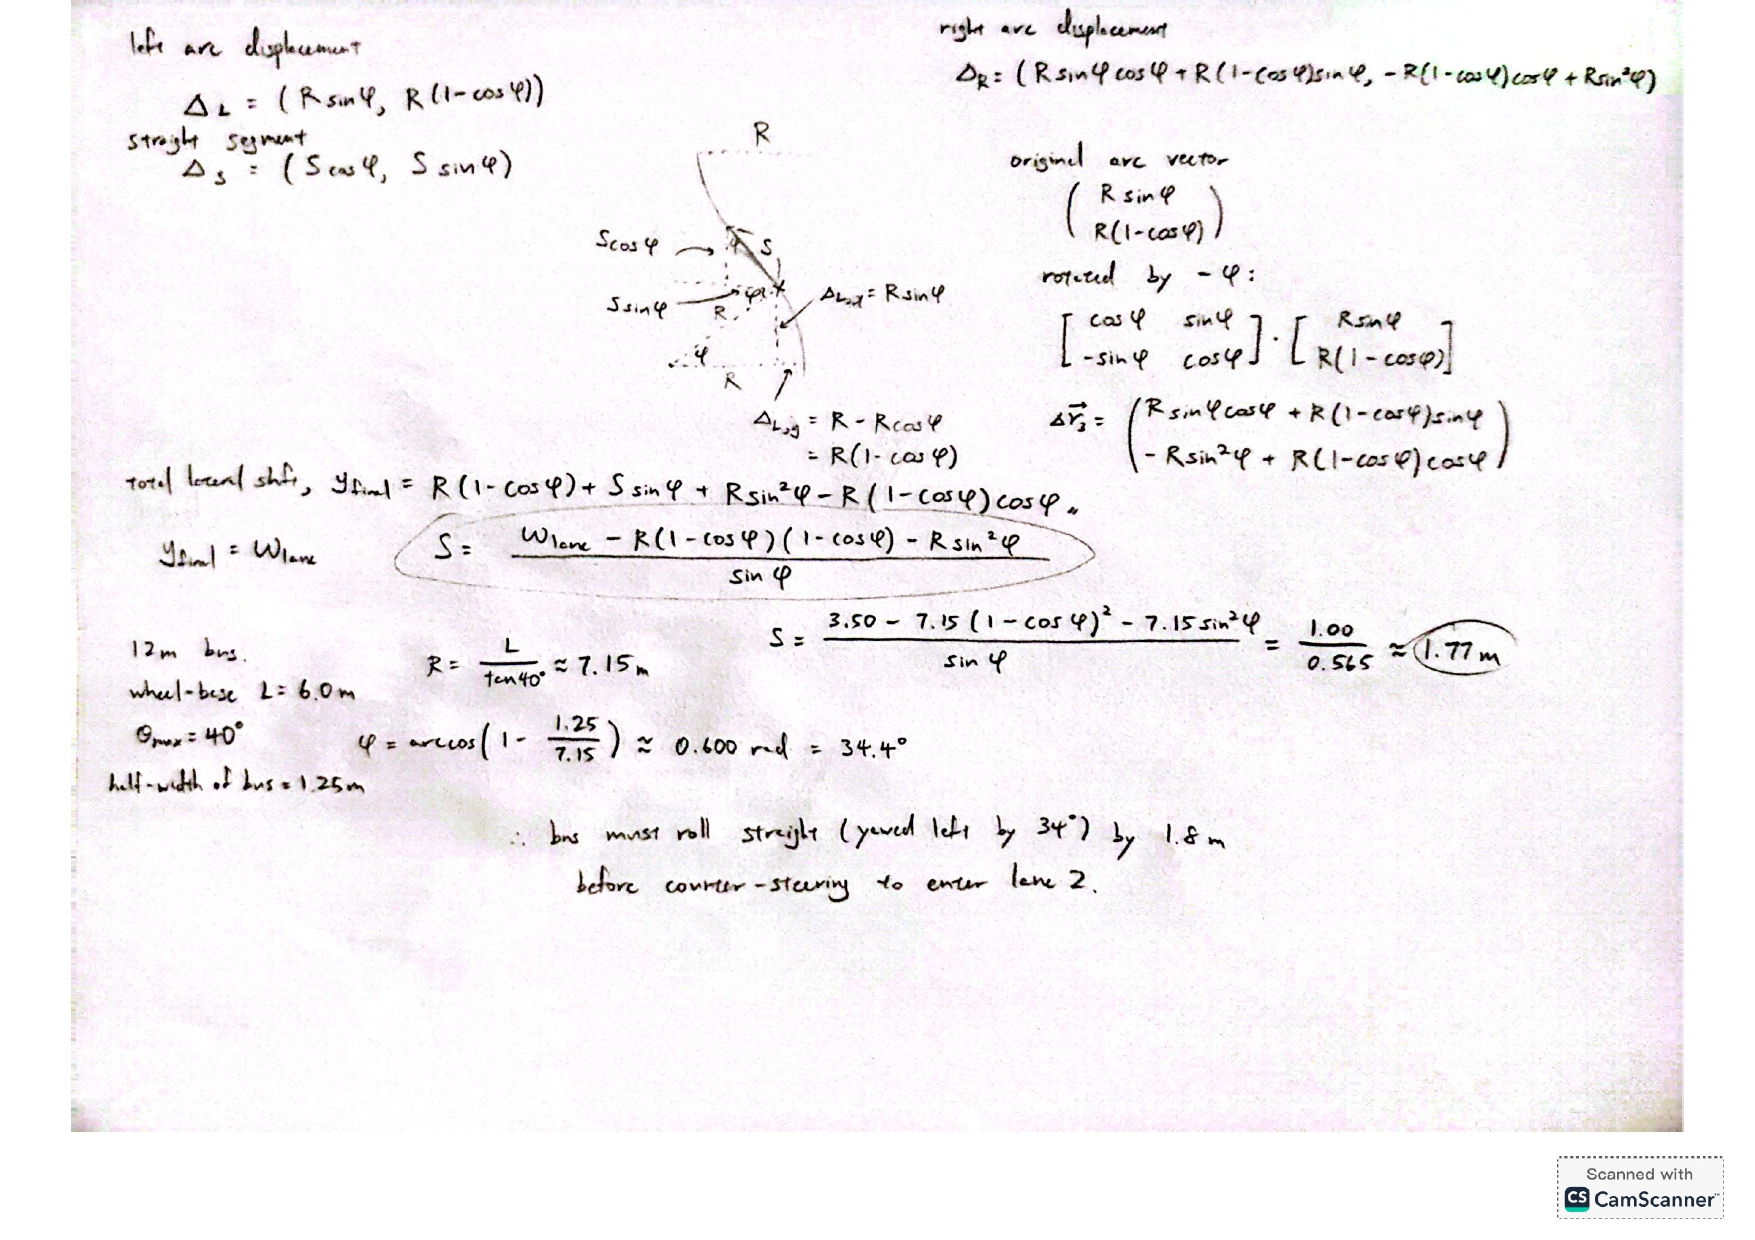 left arc displacement
Δ_L = (R sinφ, R(1-cosφ))
straight segment
Δ_s = (S cosφ, S sinφ)
right arc displacement
Δ_R = (R sinφ cosφ + R(1-cosφ)sinφ, -R(1-cosφ)cosφ + Rsin²φ)
R
S cos φ
φ
S
S sinφ
φ
R
Δ_L,x = R sinφ
φ
R
Δ_L,y = R - R cosφ
= R(1-cosφ)
original arc vector
( R sinφ
R(1-cosφ) )
rotated by -φ:
[ cosφ sinφ
-sinφ cosφ ] · [ R sinφ
R(1-cosφ) ]
Δr⃗₃ = ( R sinφ cosφ + R(1-cosφ)sinφ
- R sin²φ + R(1-cosφ)cosφ )
total lateral shift, y_final = R(1-cosφ) + S sinφ + R sin²φ - R(1-cosφ)cosφ
y_final = W_lane
S = (W_lane - R(1-cosφ)(1-cosφ) - R sin²φ) / sin φ
12m bus.
wheel-base L = 6.0 m
θ_max = 40°
half-width of bus = 1.25m
R = L / tan40° ≈ 7.15 m
S = (3.50 - 7.15(1-cosφ)² - 7.15 sin²φ) / sin φ = 1.00 / 0.565 ≈ 1.77 m
φ = arccos(1 - 1.25 / 7.15) ≈ 0.600 rad = 34.4°
∴ bus must roll straight (yawed left by 34°) by 1.8 m
before counter-steering to enter lane 2.
Scanned with
CS CamScanner™